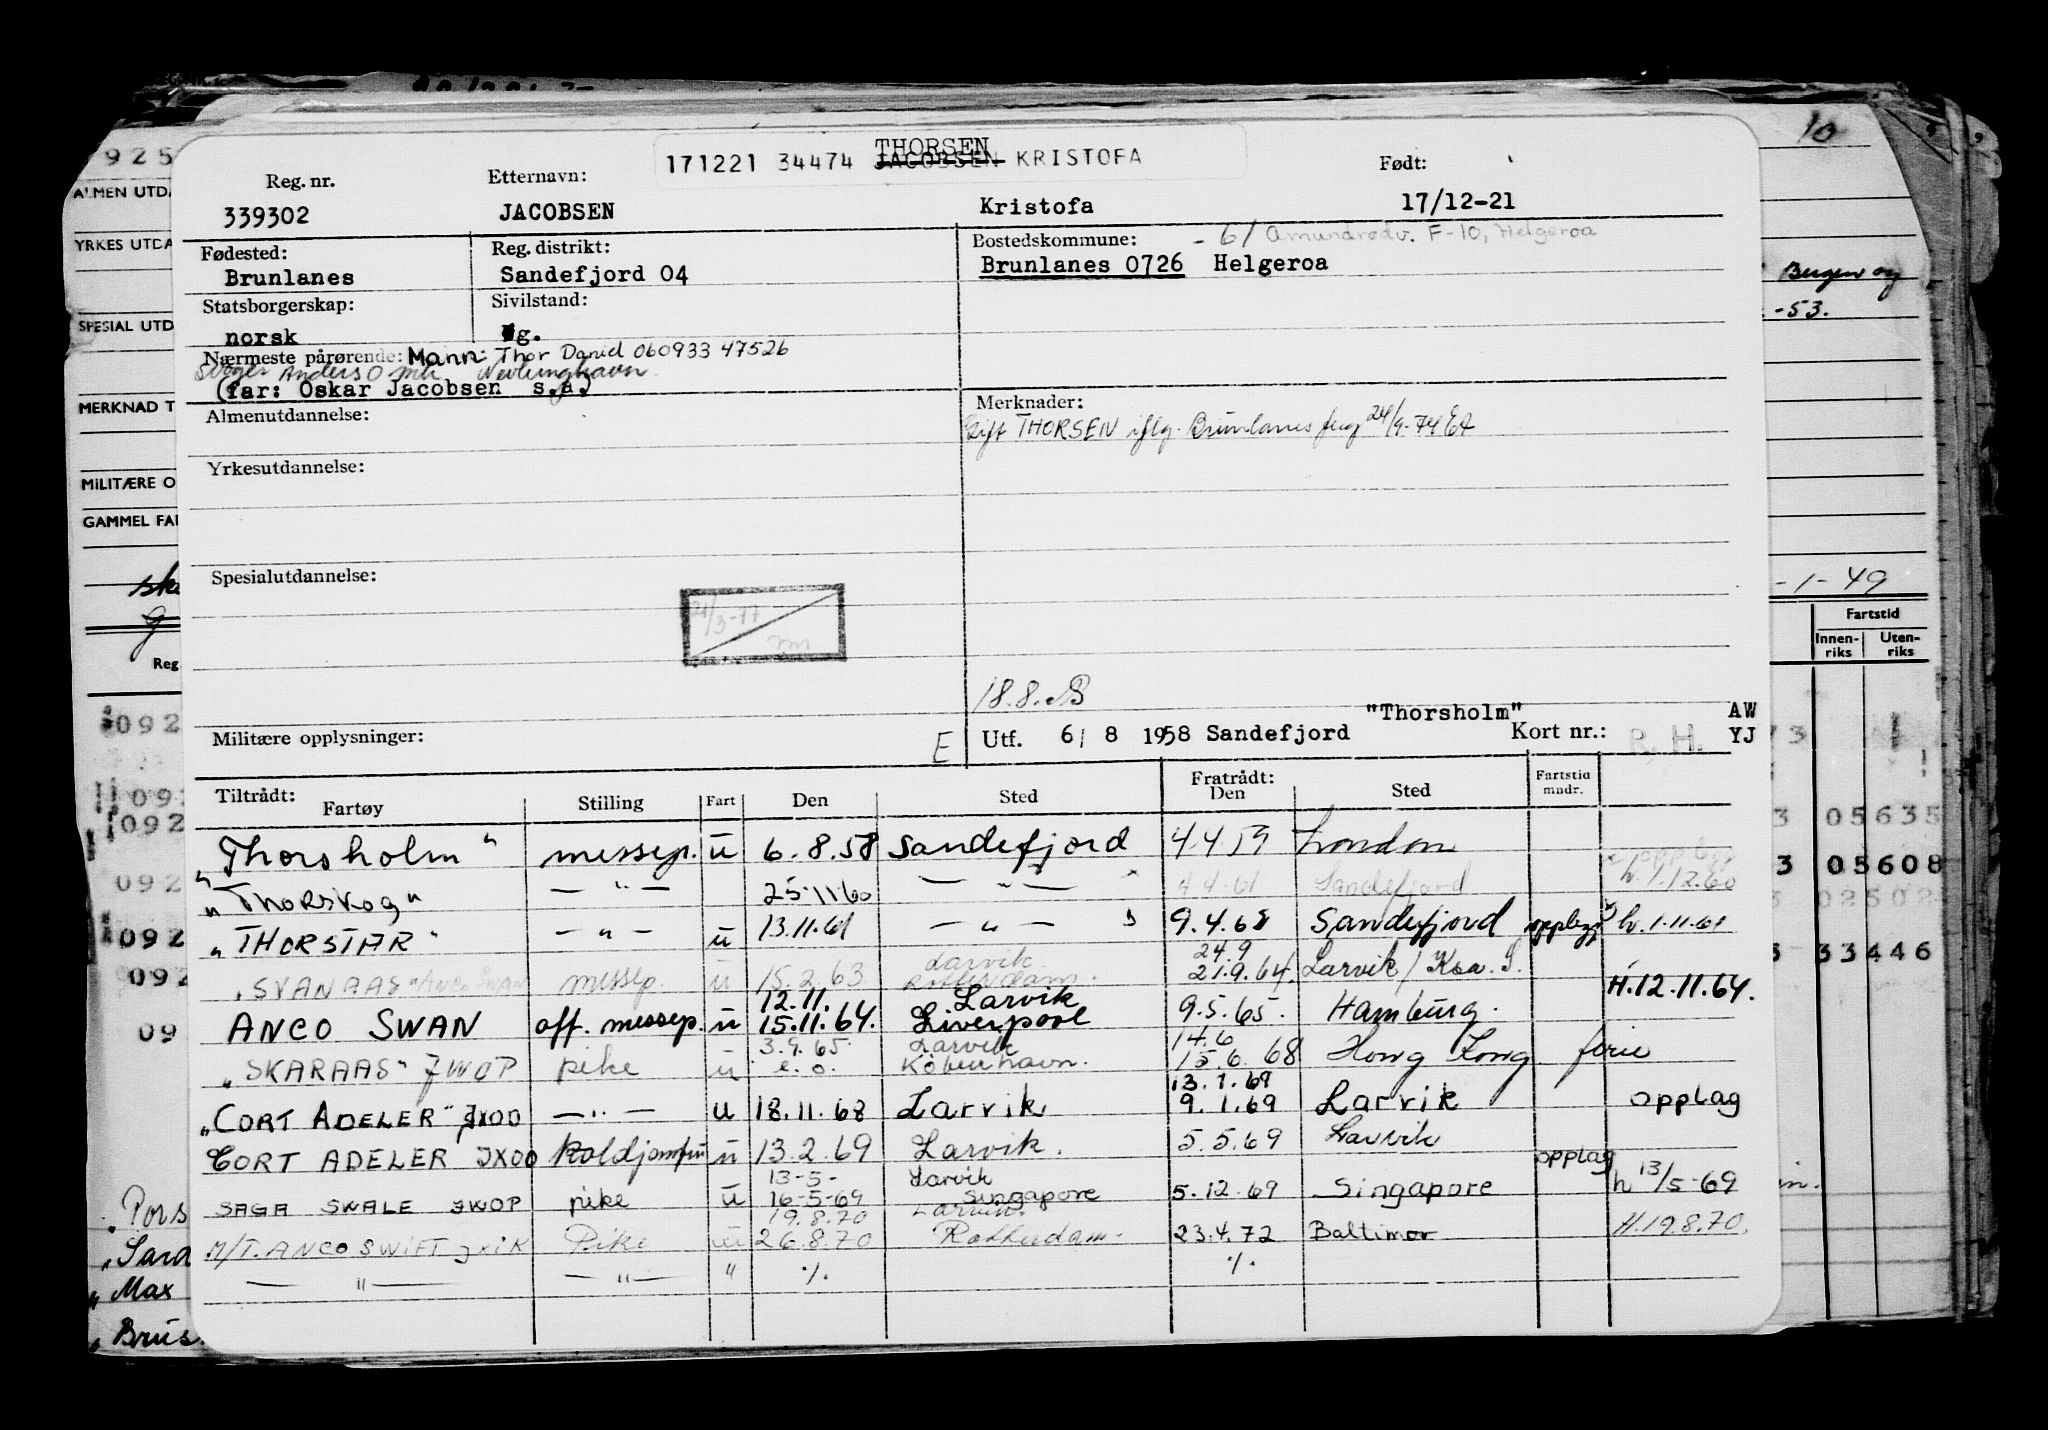 THORSEN
171221 34474 JACOBSEN KRISTOFA
Reg. nr. Etternavn: Født:
339302 JACOBSEN Kristofa 17/12-21
Fødested: Reg. distrikt: Bostedskommune: - 6/ Amundrødv. F-10, Helgeroa
Brunlanes Sandefjord 04 Brunlanes 0726 Helgeroa
Statsborgerskap: Sivilstand:
norsk g.
Nærmeste pårørende: Mann: Thor Daniel 060933 47526
Svoger Anders O Nevlunghavn
(far: Oskar Jacobsen s.a.)
Almenutdannelse: Merknader:
Gift THORSEN iflg. Brunlanes 24/9-74
Yrkesutdannelse:
Spesialutdannelse:
21/3-77
18.8.
"Thorsholm" AW
Militære opplysninger: E Utf. 6/ 8 1958 Sandefjord Kort nr.: R. H. YJ
Tiltrådt: Fratrådt: Fartstid mndr.
Fartøy Stilling Fart Den Sted Den Sted
"Thorsholm" messep. u 6.8.58 Sandefjord 4.4.59 London
"Thorskog" — " — 25.11.60 — " — 4.4.61 Sandefjord h. 1.12.60
"THORSTAR" — " — u 13.11.61 — " — 9.4.62 Sandefjord opplegg h. 1.11.61
Larvik 24.9
"SVANAAS" "Anco Swan" messep. u 15.2.63 Rotterdam. 21.9.64. Larvik / Ksa. S.
12.11. Larvik H.12.11.64.
ANCO SWAN off. messep. u 15.11.64. Liverpool 9.5.65. Hamburg.
3.9.65 Larvik 14.6
"SKARAAS" JWOP pike u e.o. København. 15.6.68 Hong Kong ferie
13.1.69
"CORT ADELER" JXOO — " — u 18.11.68 Larvik 9.1.69 Larvik opplag
CORT ADELER JXOO Koldjomfru u 13.2.69 Larvik. 5.5.69 Larvik opplag
13-5- Larvik
SAGA SWALE JWOP pike u 16-5-69 Singapore 5.12.69 Singapore h 13/5-69
19.8.70 Larvik
M/T. ANCO SWIFT JXIK Pike u 26.8.70 Rotterdam. 23.4.72 Baltimor H.19.8.70.
— " — — " — " %. %.
925
ALMEN UTDA
YRKES UTDA
SPESIAL UTD
MERKNAD T
MILITÆRE O
GAMMEL FAR
Reg
092
092
092
092
092
092
09
"Sara
"Max
"Brus.
10
Bergen og
-53.
-1-49
Fartstid
Innenriks Utenriks
73
3 05635
3 05608
3 02502
3 33446